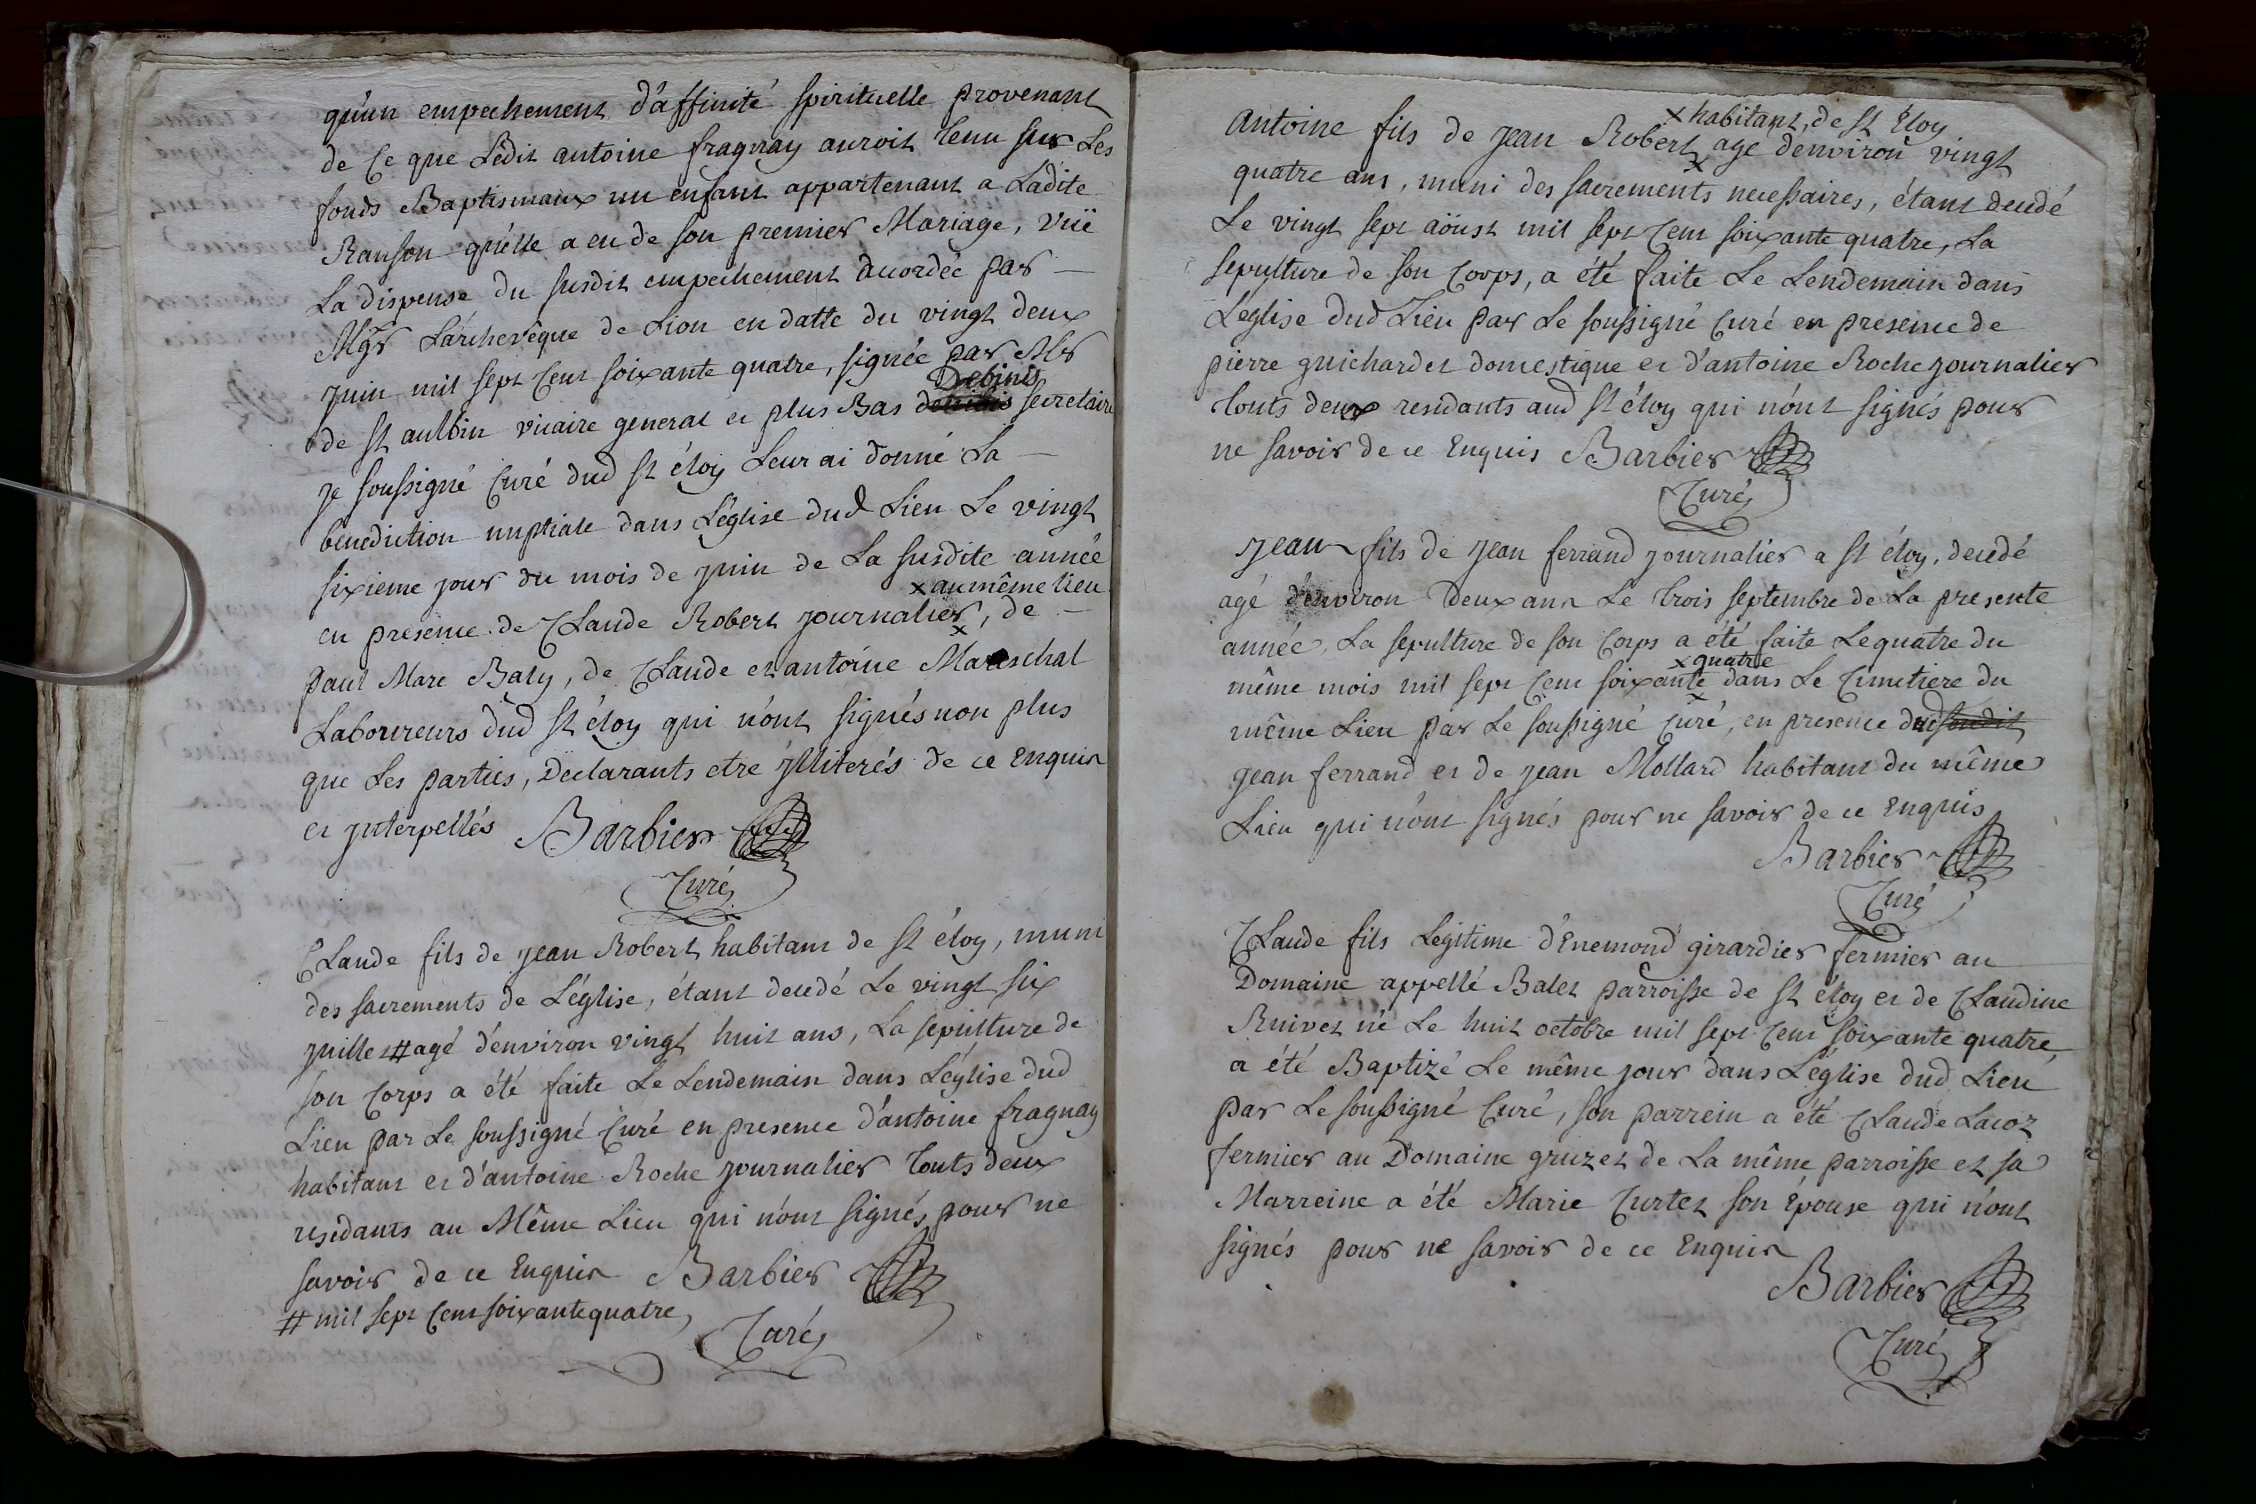 qu'un empechement d'affinité spirituelle provenant
de Ce que Ledit antoine fragnay auroit tenu sur Les
fonds Baptismaux un enfant appartenant a Ladite
Ranson qu'elle a eu de son premier Mariage, vüe
La dispense du susdit empechement accordée par —
Mgr L'archevêque de Lion en datte du vingt deux
juin mil sept Cent soixante quatre, signée par Mr
Debinis
de St aulbin vicaire general et plus Bas secretaire
je soussigné Curé dud St éloy Leur ai donné La —
benediction nuptiale dans L'église dud Lieu Le vingt
sixieme jour du mois de juin de La susdite année
x au même lieu
en presence de Claude Robert journalier x, de —
paul Marc Baly, de Claude et antoine Mareschal
Laboureurs dud St éloy qui n'ont signés non plus
que Les parties, Declarants etre jlliterés de ce Enquis
et jnterpellés Barbier
Curé
Claude fils de jean Robert habitant de St éloy, muni
des sacrements de L'église, étant decedé Le vingt six
juillet # agé d'environ vingt huit ans, La sepulture de
son Corps a été faite Le Lendemain dans L'église dud
Lieu par Le soussigné Curé en presence d'antoine fragnay
habitant et d'antoine Roche journalier touts deux
residants au Même Lieu qui n'ont signés pour ne
savoir de ce Enquis Barbier
# mil sept Cent soixante quatre,
Curé
x habitant de St Eloy
antoine fils de jean Robert x age d'environ vingt
quatre ans, muni des sacrements necessaires, étant decedé
Le vingt sept aöust mil sept Cent soixante quatre, La
sepulture de son Corps, a été faite Le Lendemain dans
L'eglise dud Lieu par Le soussigné Curé en presence de
pierre guichardet domestique et d'antoine Roche journalier
touts deux residants aud St éloy qui n'ont signés pour
ne savoir de ce Enquis Barbier
Curé
jean fils de jean ferrand journalier a St éloy, decedé
agé d'environ Deux ans Le trois septembre de La presente
année, La sepulture de son Corps a été faite Le quatre du
x quatre
même mois mil sept Cent soixante x dans Le Cimetiere du
même Lieu par Le soussigné Curé, en presence dud susdit
jean ferrand et de jean Mollard habitant du même
Lieu qui n'ont signés pour ne savoir de ce Enquis
Barbier
Curé
Claude fils Legitime d'Enemond girardier fermier au
Domaine appellé Balet parroisse de St éloy et de Claudine
Ruivet né Le huit octobre mil sept Cent soixante quatre,
a été Baptizé Le même jour dans L'église dud Lieu
par Le soussigné Curé, son parrein a été Claude Lacoz
fermier au Domaine gruzet de La même parroisse et sa
Marreine a été Marie Curtet son Epouse qui n'ont
signés pour ne savoir de ce Enquis
Barbier
Curé